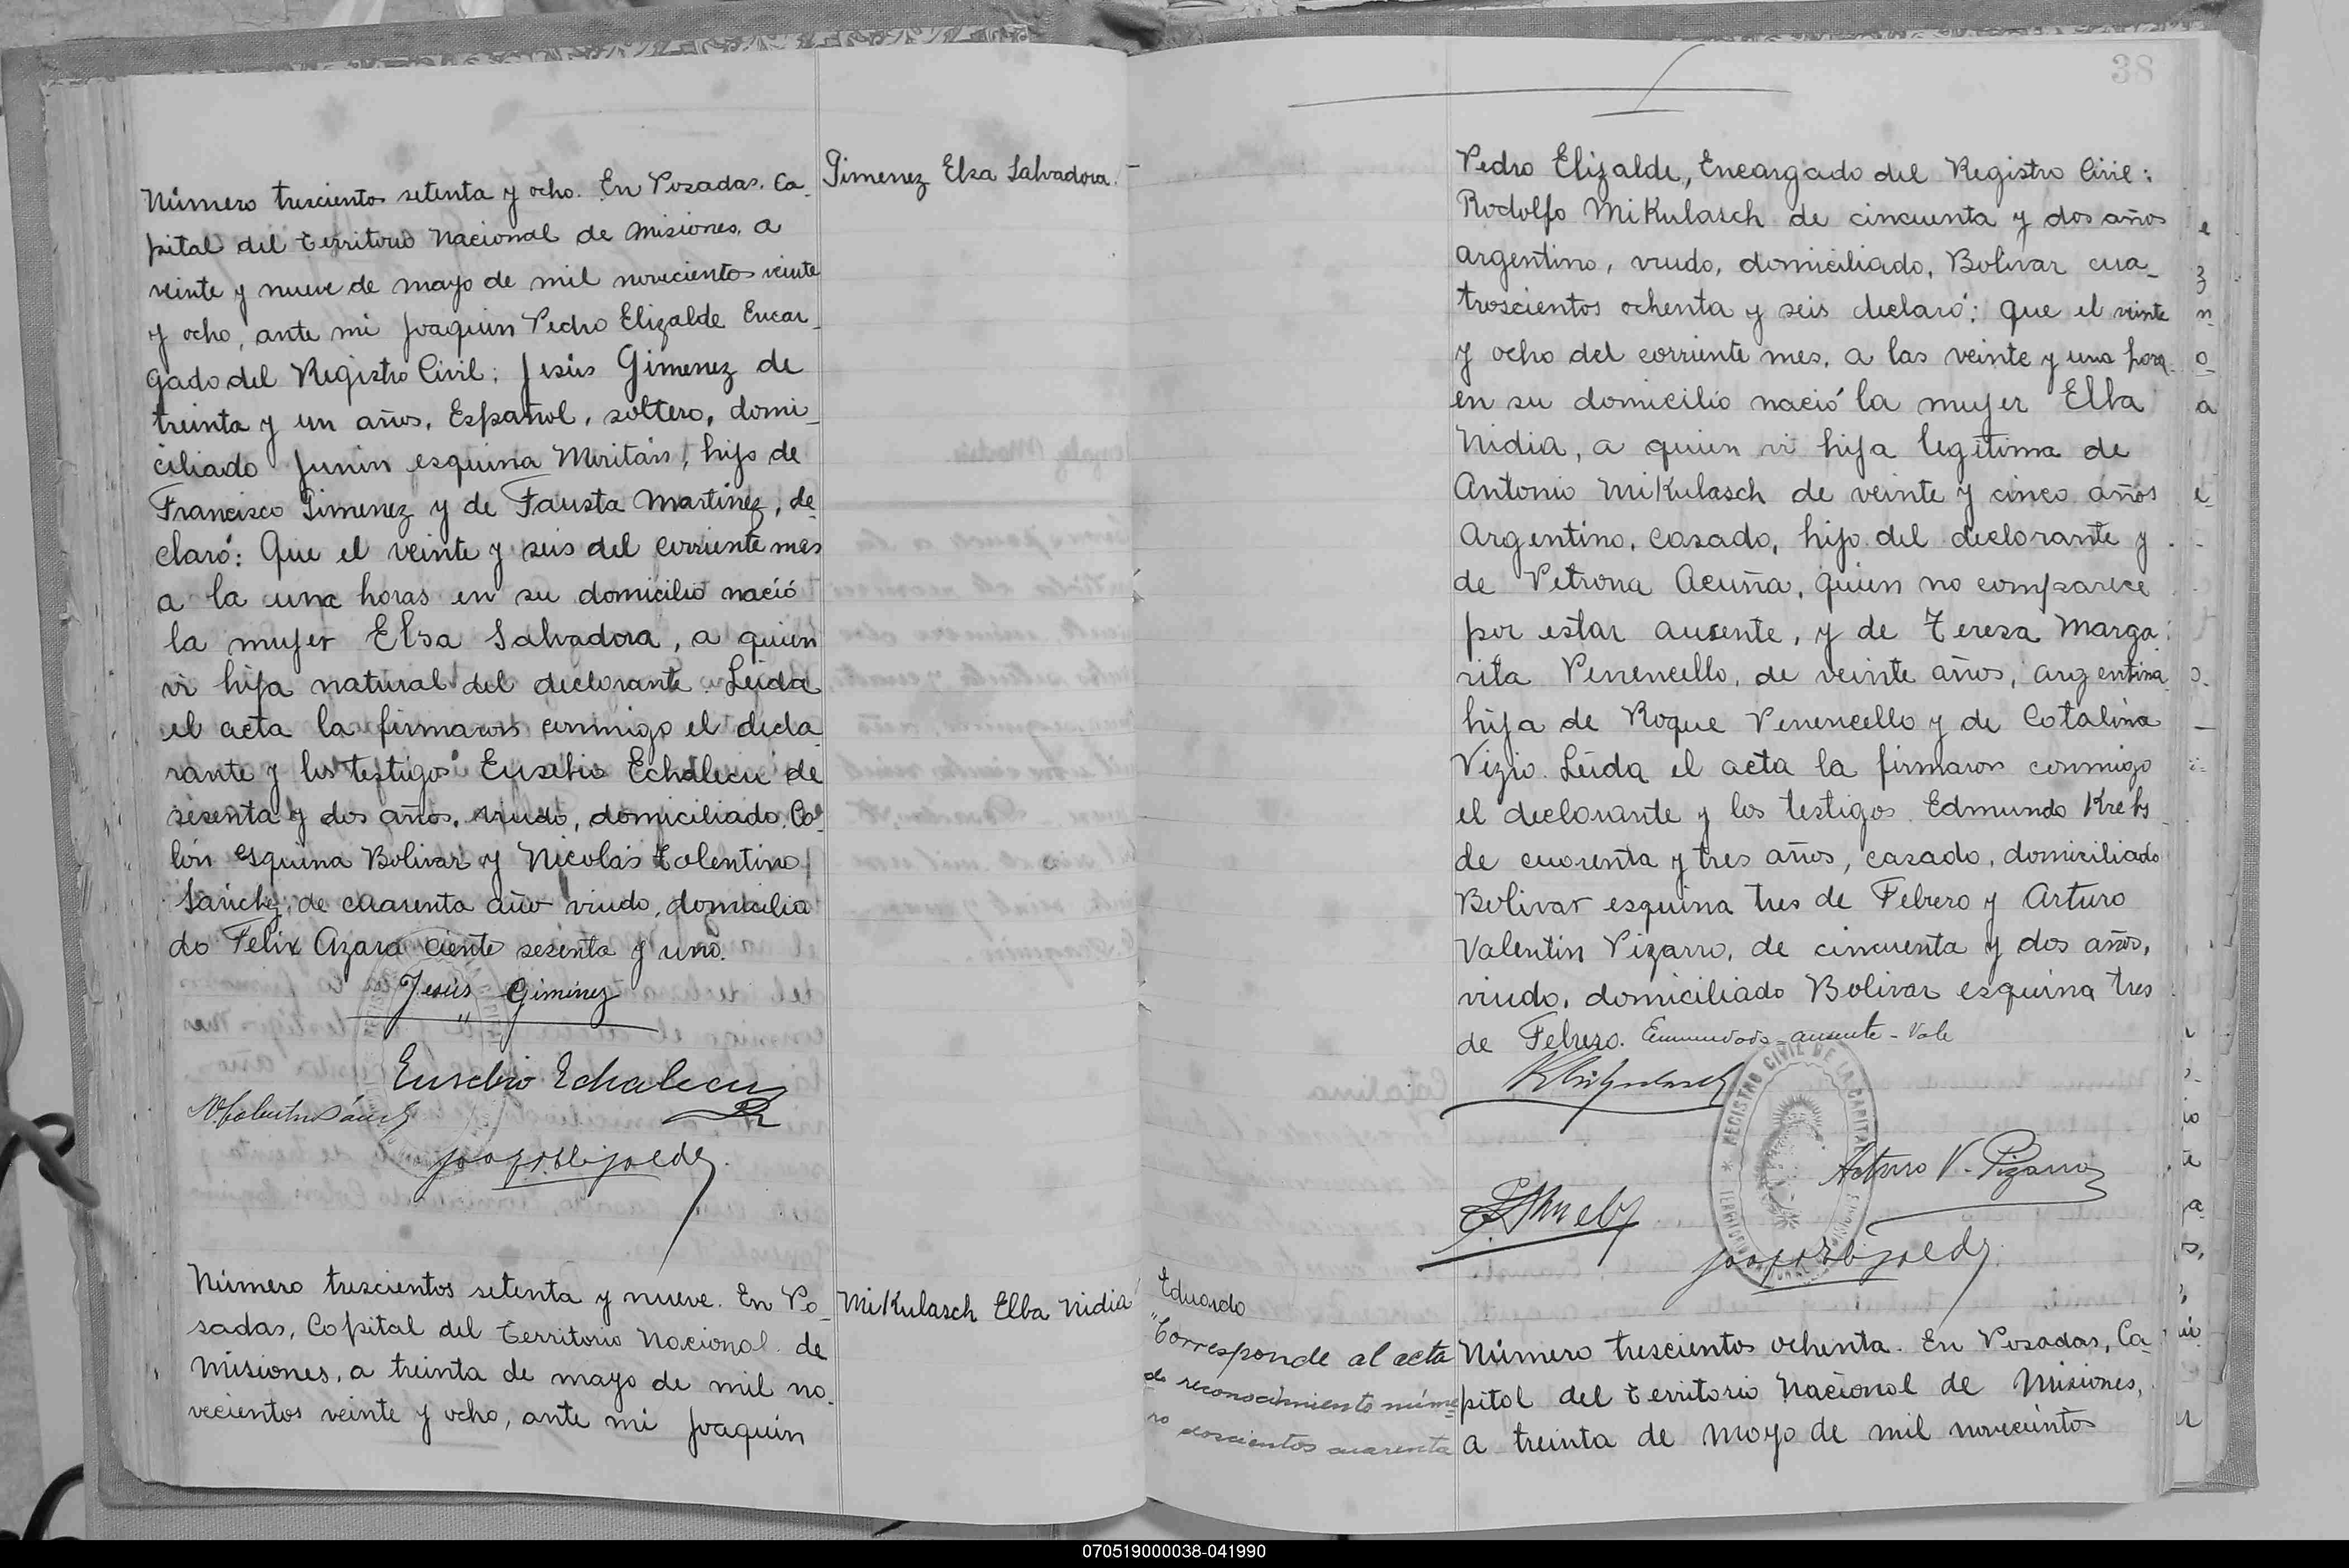 Número trescientos setenta y ocho. En Posadas, Ca-
pital del territorio Nacional de Misiones, a
veinte y nueve de mayo de mil novecientos veinte
y ocho, ante mi Joaquin Pedro Elizalde Encar-
gado del Registro Civil; Jesús Gimenez de
treinta y un años, Español, soltero, domi-
ciliado Junin esquina Miritán, hijo de
Francisco Gimenez y de Fausta Martinez, de-
claró: Que el veinte y seis del corriente mes
a la una horas en su domicilio nació
la mujer Elsa Salvadora, a quien
vi hija natural del declarante. Leida
el acta la firmaron conmigo el decla-
rante y los testigos Eusebio Echalecu de
sesenta y dos años, viudo, domiciliado Co-
lón esquina Bolivar y Nicolás Tolentino
Sánchez, de cuarenta año viudo, domicilia
do Felix Azara ciento sesenta y uno.
Jesús Giminez
Eusebio Echalecu
N. Tolentino Sánchez
Joaq. P. Elizalde
Gimenez Elsa Salvadora.-
Número trescientos setenta y nueve. En Po-
sadas, Capital del territorio Nacional de
Misiones, a treinta de mayo de mil no-
vecientos veinte y ocho, ante mi Joaquin
Mikulasch Elba Nidia
38
Pedro Elizalde, Encargado del Registro Civil:
Rodolfo Mikulasch de cincuenta y dos años
argentino, viudo, domiciliado, Bolivar cua-
troscientos ochenta y seis declaró: Que el veinte
y ocho del corriente mes, a las veinte y una hora
en su domicilio nació la mujer Elba
Nidia, a quien vi hija legítima de
Antonio Mikulasch de veinte y cinco años
Argentino, casado, hijo del declarante y
de Petrona Acuña, quien no comparece
por estar ausente, y de Teresa Marga
rita Penencello, de veinte años, argentina
hija de Roque Penencello y de Catalina
Vizio. Leida el acta la firmaron conmigo
el declarante y los testigos Edmundo Krebs
de cuarenta y tres años, casado, domiciliado
Bolivar esquina tres de Febrero y Arturo
Valentin Pizarro, de cincuenta y dos años,
viudo, domiciliado Bolivar esquina tres
de Febrero. Enmendado=ausente-Vale
REGISTRO CIVIL DE LA CAPITAL
TERRITORIO
MISIONES
Arturo V. Pizarro
Joaq. P. Elizalde
Eduardo
"Corresponde al acta
de reconocimiento núme
ro doscientos cuarenta
Número trescientos ochenta. En Posadas, Ca-
pital del territorio Nacional de Misiones,
a treinta de mayo de mil novecientos
070519000038-041990